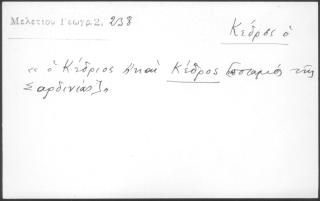 Μελετίου Γεωγρ. 2, 238
Κέδρος ὁ
« ὁ Κέδριος ἢ καὶ Κέδρος (ποταμὸς τῆς
Σαρδινίας).